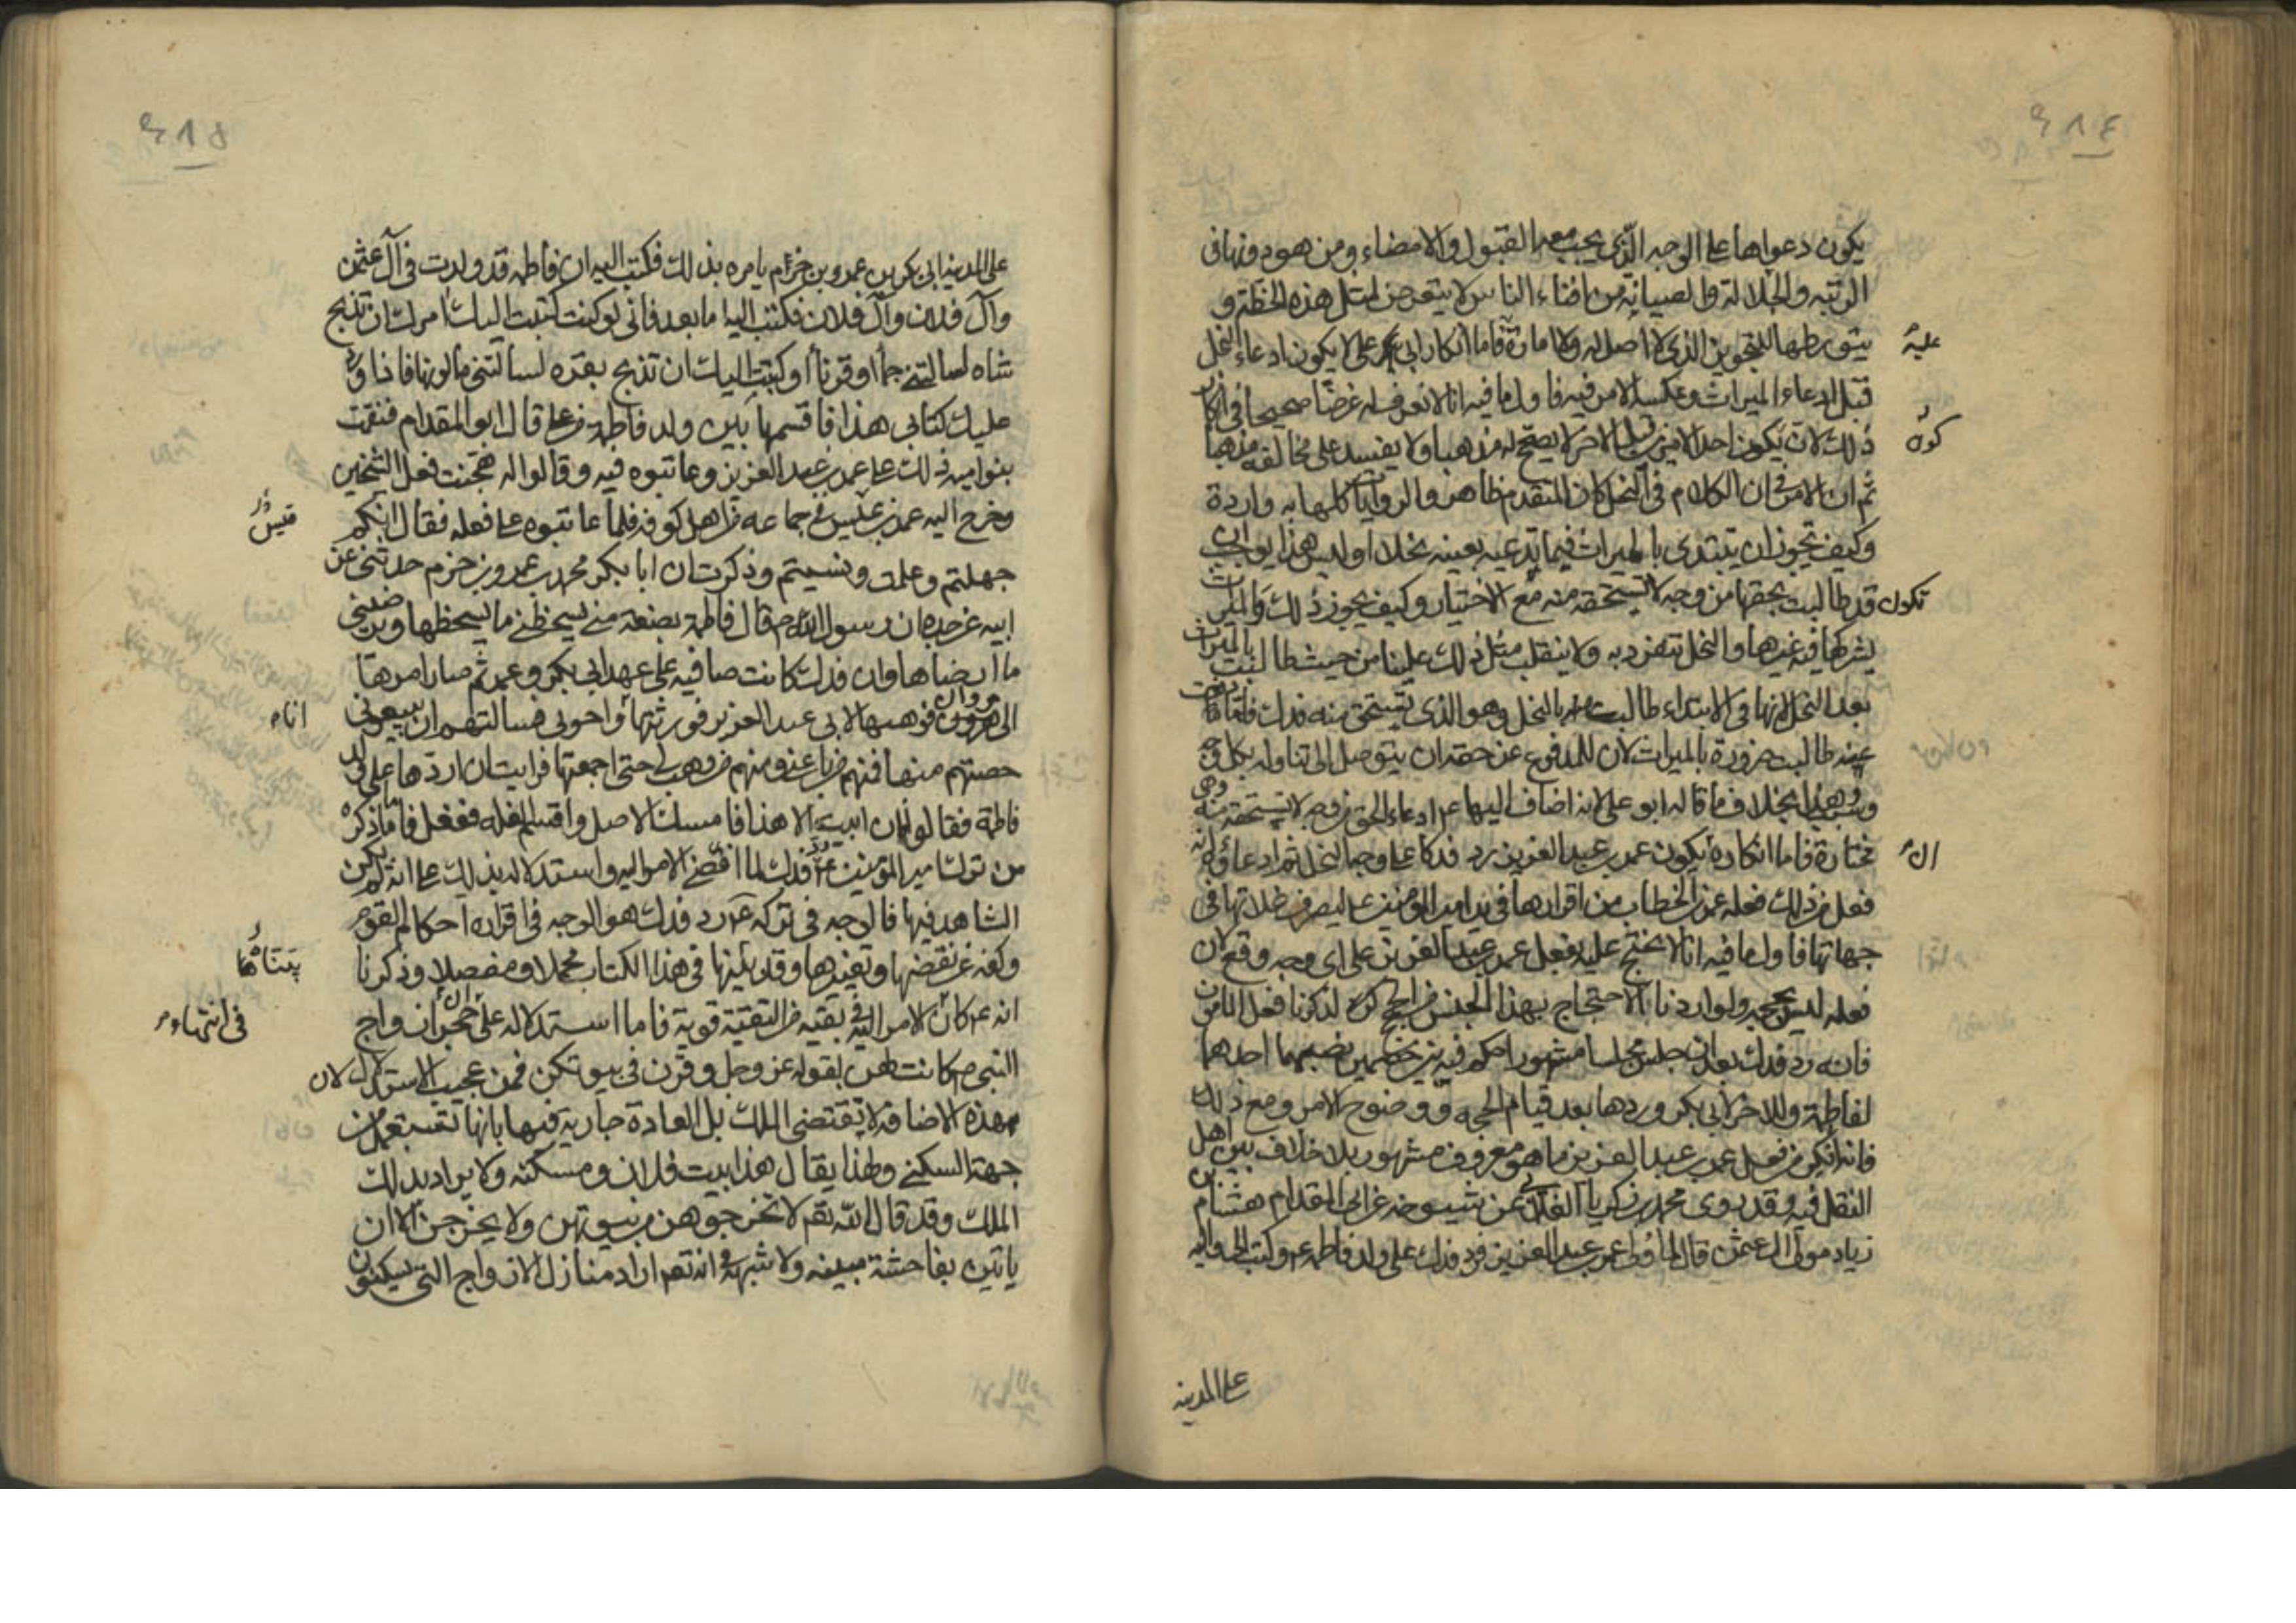 ٢٨٤
يكون دعواها على الوجه الذي يجب معه القبول والامضاء ومن هو دونها في
الرتبه والجلالة والصيانة من افناء الناس لا يتعرض لمثل هذه الخطة و
يتورطها للتجويز الذي لا اصل له ولا امارة فاما انكار ابي على لا يكون ادعاء النحل
عليه
قبل ادعاء الميراث وعكسه الامر فيه فاول ما فيه انا لا نعرف له غرضا صحيحا في انكار
ذلك لان يكون احد الامرين قبل الاخر لا يصح له مذهبا ولا يفسد على مخالفه مذهبا
كون
ثم ان الامر في ان الكلام في النحل كان المتقدم ظاهر والروايات كلها به واردة
وكيف يجوز ان يبتدى بالميراث فيما تدعيه بعينه نحلا اوليس هذا يوجب ان
تكون قد طالبت بحقها من وجه لا تستحقه منه مع الاختيار وكيف يجوز ذلك والميراث
يشركها فيه غيرها والنحل تنفرد به ولا ينقلب مثل ذلك علينا من حيث طالبت بالميراث
بعد النحل لانها في الابتداء طالبت بالنحل وهو الذي تستحق منه فدك فلما دفعت
عنه طالبت ضرورة بالميراث لان للمدفوع عن حقه ان يتوصل الى تناوله بكل وجه
وهذا بخلاف ما قاله ابو على لانه اضاف اليها ادعاء الحق من وجه لا تستحقه منه وهي
مختارة فاما انكاره يكون عمر بن عبد العزيز رد فدكا على وجه النحل ثم ادعاؤه انه
ان
فعل من ذلك فعله عمر بن الخطاب من اقرارها في يد امير المؤمنين عليه ليصرف غلاتها في
جهاتها فاول ما فيه انا لا نحتج عليه بفعل عمر بن عبد العزيز على اى وجه وقع لان
فعله ليس بحجه ولو اردنا الاحتجاج بهذا الجنس من الحجج لذكرنا فعل المامون
فانه رد فدك بعد ان جلس مجلسا مشهورا حكم فيه بين خصمين نصبهما احدهما
لفاطمة والاخر لابي بكر وردها بعد قيام الحجه ووضوح الامر ومع ذلك
فانه انكر من فعل عمر بن عبد العزيز ما هو معروف مشهور بلا خلاف بين اهل
النقل فيه وقد روى محمد بن زكريا الغلابي عن شيوخه عن ابى المقدام هشام بن
زياد مولى ال عثمن قال لما ولى عمر بن عبد العزيز فرد فدك على ولد فاطمه ع وكتب الى واليه
على المدينه
٢٨٥
على المدينه ابي بكر بن عمرو بن حزم يامره بذلك فكتب اليه ان فاطمه قد ولدت في آل عثمن
وآل فلان وآل فلان فكتب اليه اما بعد فاني لو كنت كتبت اليك امرك ان تذبح
شاه لسالتني جما او قرنا او كتبت اليك ان تذبح بقره لسالتني ما لونها فاذا ورد
عليك كتابي هذا فاقسمها بين ولد فاطمة من على قال ابو المقدام فنقمت
بنو اميه ذلك على عمر بن عبد العزيز وعاتبوه فيه وقالوا له هجنت فعل الشيخين
وخرج اليه عمر بن عبيس في جماعه من اهل كوفه فلما عاتبوه على فعله فقال انكم
قيس
جهلتم وعلمت ونسيتم وذكرت ان ابا بكر محمد بن عمرو بن حزم حدثني عن
ابيه عن جده ان رسول الله ص قال فاطمة بضعه مني يسخطني ما يسخطها ويرضيني
ما ارضاها وان فدك كانت صافيه على عهد ابي بكر وعمر ثم صار امرها
الى مروان فوهبها لابي عبد العزيز فورثتها انا واخوتي فسالتهم ان يبيعوني
اناه
حصتهم منها فمنهم من باعني ومنهم من وهب لي حتى اجمعتها فرايت ان اردها على ولد
فاطمة فقالوا ان ابيت الا هذا فامسك الاصل واقسم الغله ففعل فاما ما ذكره
من ترك امير المؤمنين ع رد فدك لما افضى الامر اليه واستدلاله بذلك على انه لم يكن
الشاهد فيها فالوجه في تركه ع رد فدك هو الوجه في اقراره احكام القوم
وكفه عن نقضها وتغييرها وقد بيناها في هذا الكتاب مجملا ومفصلا وذكرنا
بيناهما
انه ع كان الامر اليه في بقيه من التقيه قوية فاما استدلاله على ان حجر ازواج
في انتهاء
النبي ص كانت لهن بقوله عز وجل وقرن في بيوتكن فمن عجيب الاستدلال لان
هذه الاضافة لا تقتضى الملك بل العادة جارية فيها بانها تستعمل من
جهة السكنى ولهذا يقال هذا بيت فلان ومسكنه ولا يراد بذلك
الملك وقد قال الله تعم لا تخرجوهن من بيوتهن ولا يخرجن الا ان
ياتين بفاحشة مبينه ولا شبهة في انه تعم اراد منازل الازواج التي يسكنون